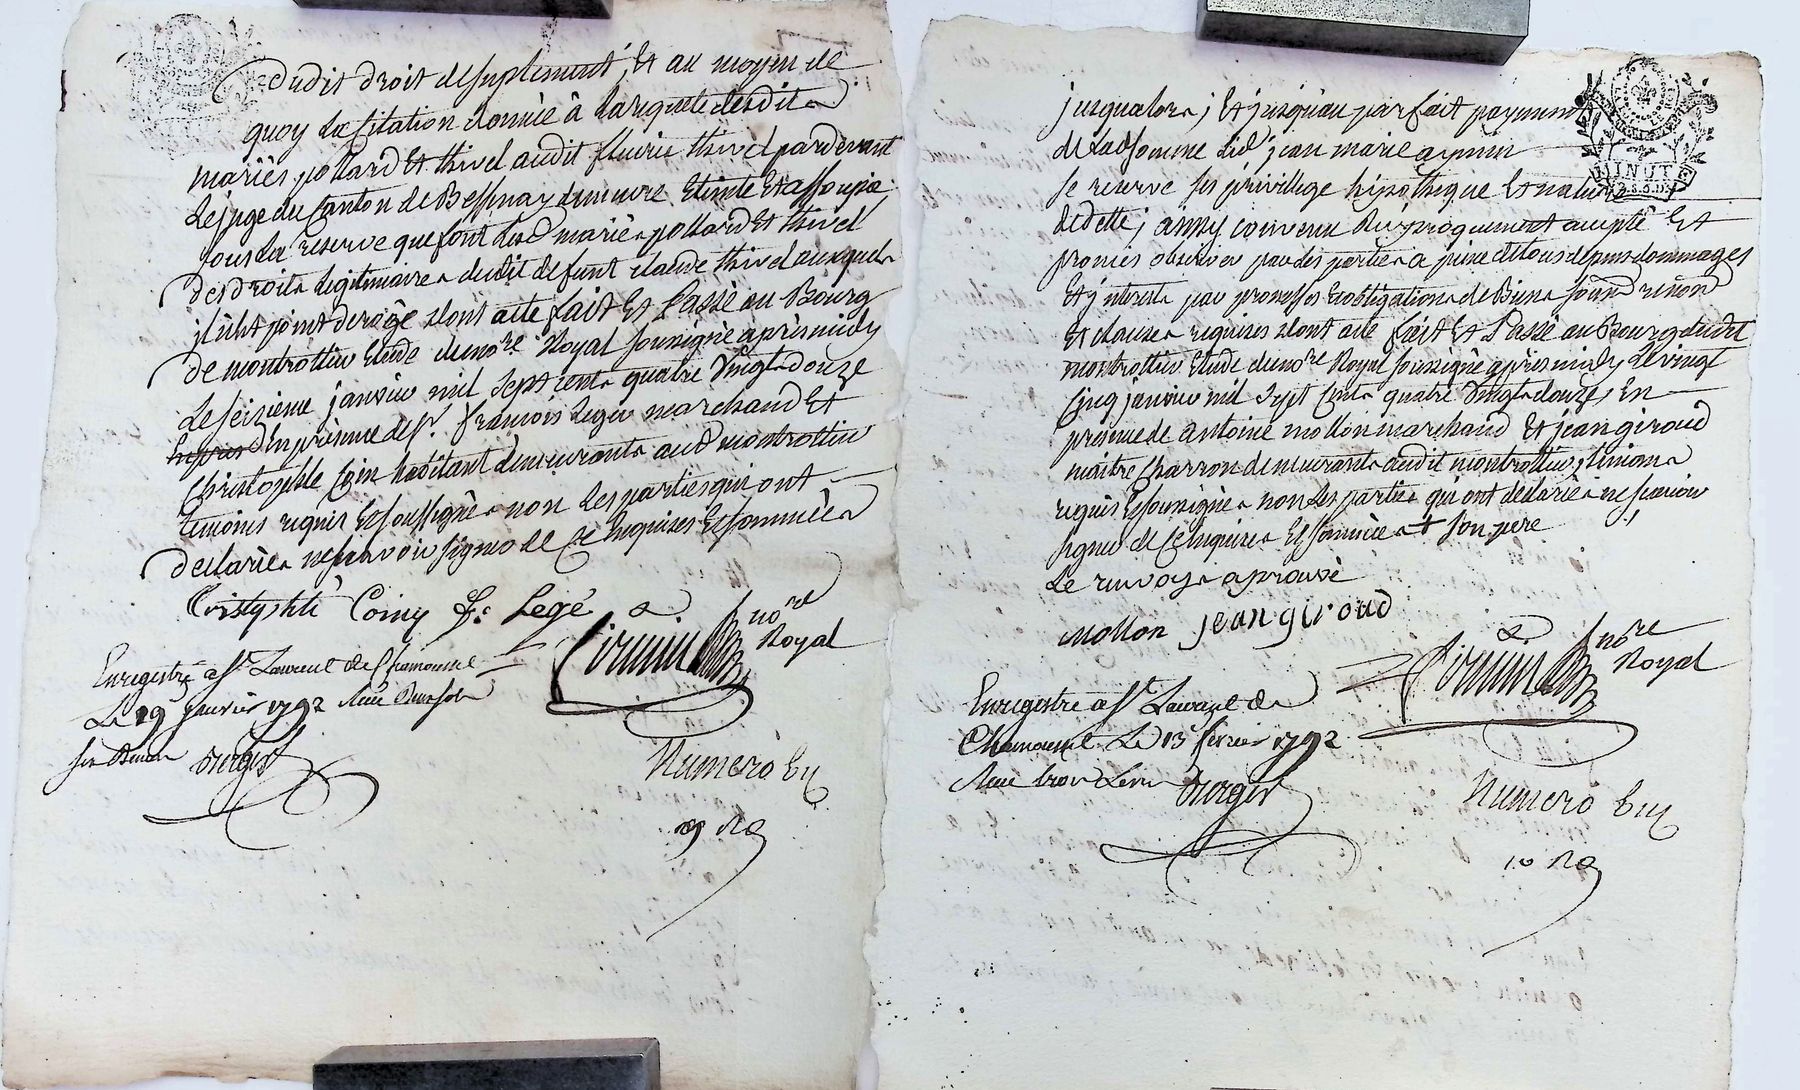 dudit droit de suplement, Et au moyen de
quoy la Citation donnée à la requete desdits
mariés pollard Et thivel audit fleurie thivel pardevant
le juge du Canton de Bessenay demeure Eteinte Et assoupie
sous la reserve que font lesd mariés pollard Et thivel
des droits legitimaires dudit defunt claude thivel auxquels
il n'est point derogé dont acte fait Et Passé au Bourg
de montrottier Etude du no.re Royal soussigné après midy
Le seizieme janvier mil sept cents quatre vingts douze
En presence de s.r francois leger marchand Et
Christophle Coin habitant demeurants aud montrottier
temoins requis Et soussignés non les parties qui ont
declarés ne scavoir signer de ce Enquises Et sommées
Cristophle Coiny f: Legé
no.re Royal
Enregistré a St. Laurent de Chamousset
Le 19 janvier 1792
Verger
Numero
9 Ro
jusqualors ; Et jusquau parfait payement
de lad somme led jean marie
se reserve ses privillege hipotheque Et nature
de dette ; ainsy convenu Reciproquement accepté Et
promis observer par les parties a peine de tous depens dommages
Et interets par promesses obligations de Biens soumd renond
Et clauses requises dont acte fait Et Passé au Bourg dudit
montrottier Etude du no.re Royal soussigné après midy Le vingt
Cinq janvier mil sept Cents quatre vingts douze, En
presence de antoine mollon marchand Et jean giroud
maitre Charron demeurants audit montrottier, temoins
requis Et soussignés non les parties qui ont declarés ne scavoir
signer de ce Enquises Et sommées + son pere
Le renvoy aprouvé
Mollon jean giroud
no.re Royal
Enregistré a St Laurent de
Chamousset Le 13 fevrier 1792
Verger
Numero
10 Ro
MINUTE